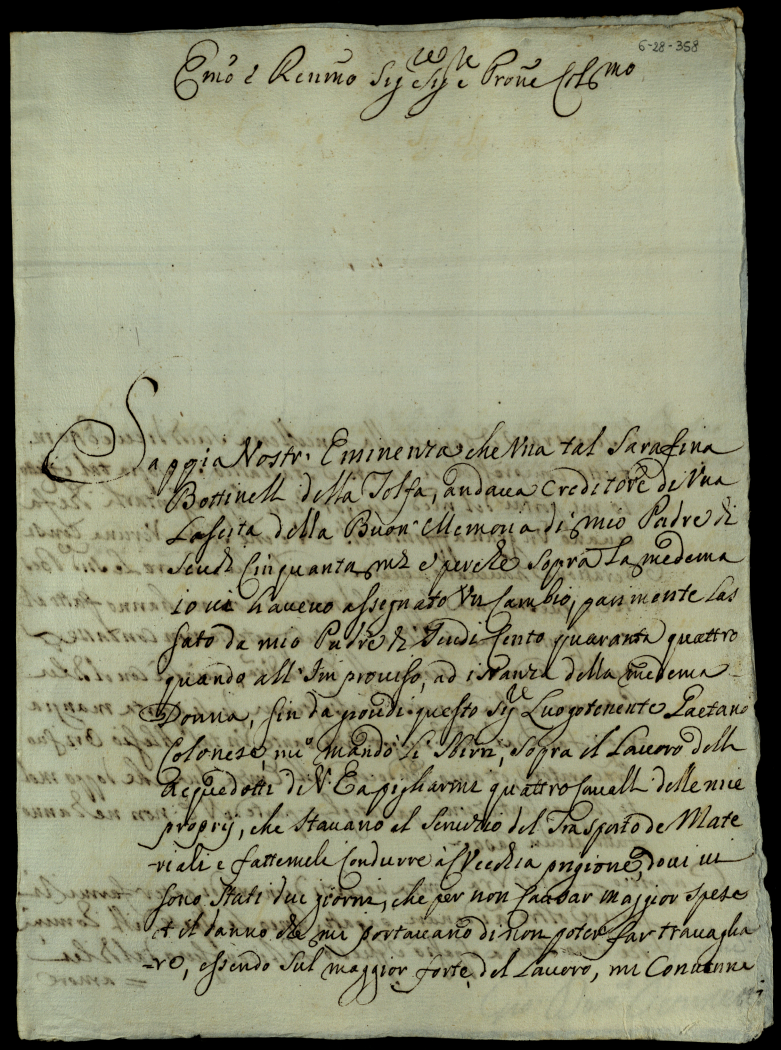 6-28-358
Emo e Renmo Sig.re Sig.re e Prone Colmo
Sappia Vostr. Eminenza che Vna tal Sarafina
Bottinelli della Tolfa, andaua Creditore de Vna
Lascita della Buon. Memoria di mio Padre di
Scudi Cinquanta mta e perche sopra La medema
io ui haueuo assegnato Vn Cambio, parimente Las
sato da mio Padre di Scudi Cento quaranta quattro
quando all'Improuiso, ad istanza della medema
Donna, sin da giouedi questo Sigre Luogotenente Gaetano
Colonese, mi mandò li Sbirri, sopra il Lauoro delli
Acquedotti di V. E a pigliarmi quattro Caualli delle mie
proprij, che stauano al Seruizio del Trasporto de Mate
-riali e fattemele Condurre à CVecchia prigione, doui ui
sono stati due giorni, che per non far dar maggior spese
et il danno che mi portauano di non poter far trauaglia
-re, essendo sul maggior forte del Lauoro, mi Conuenne